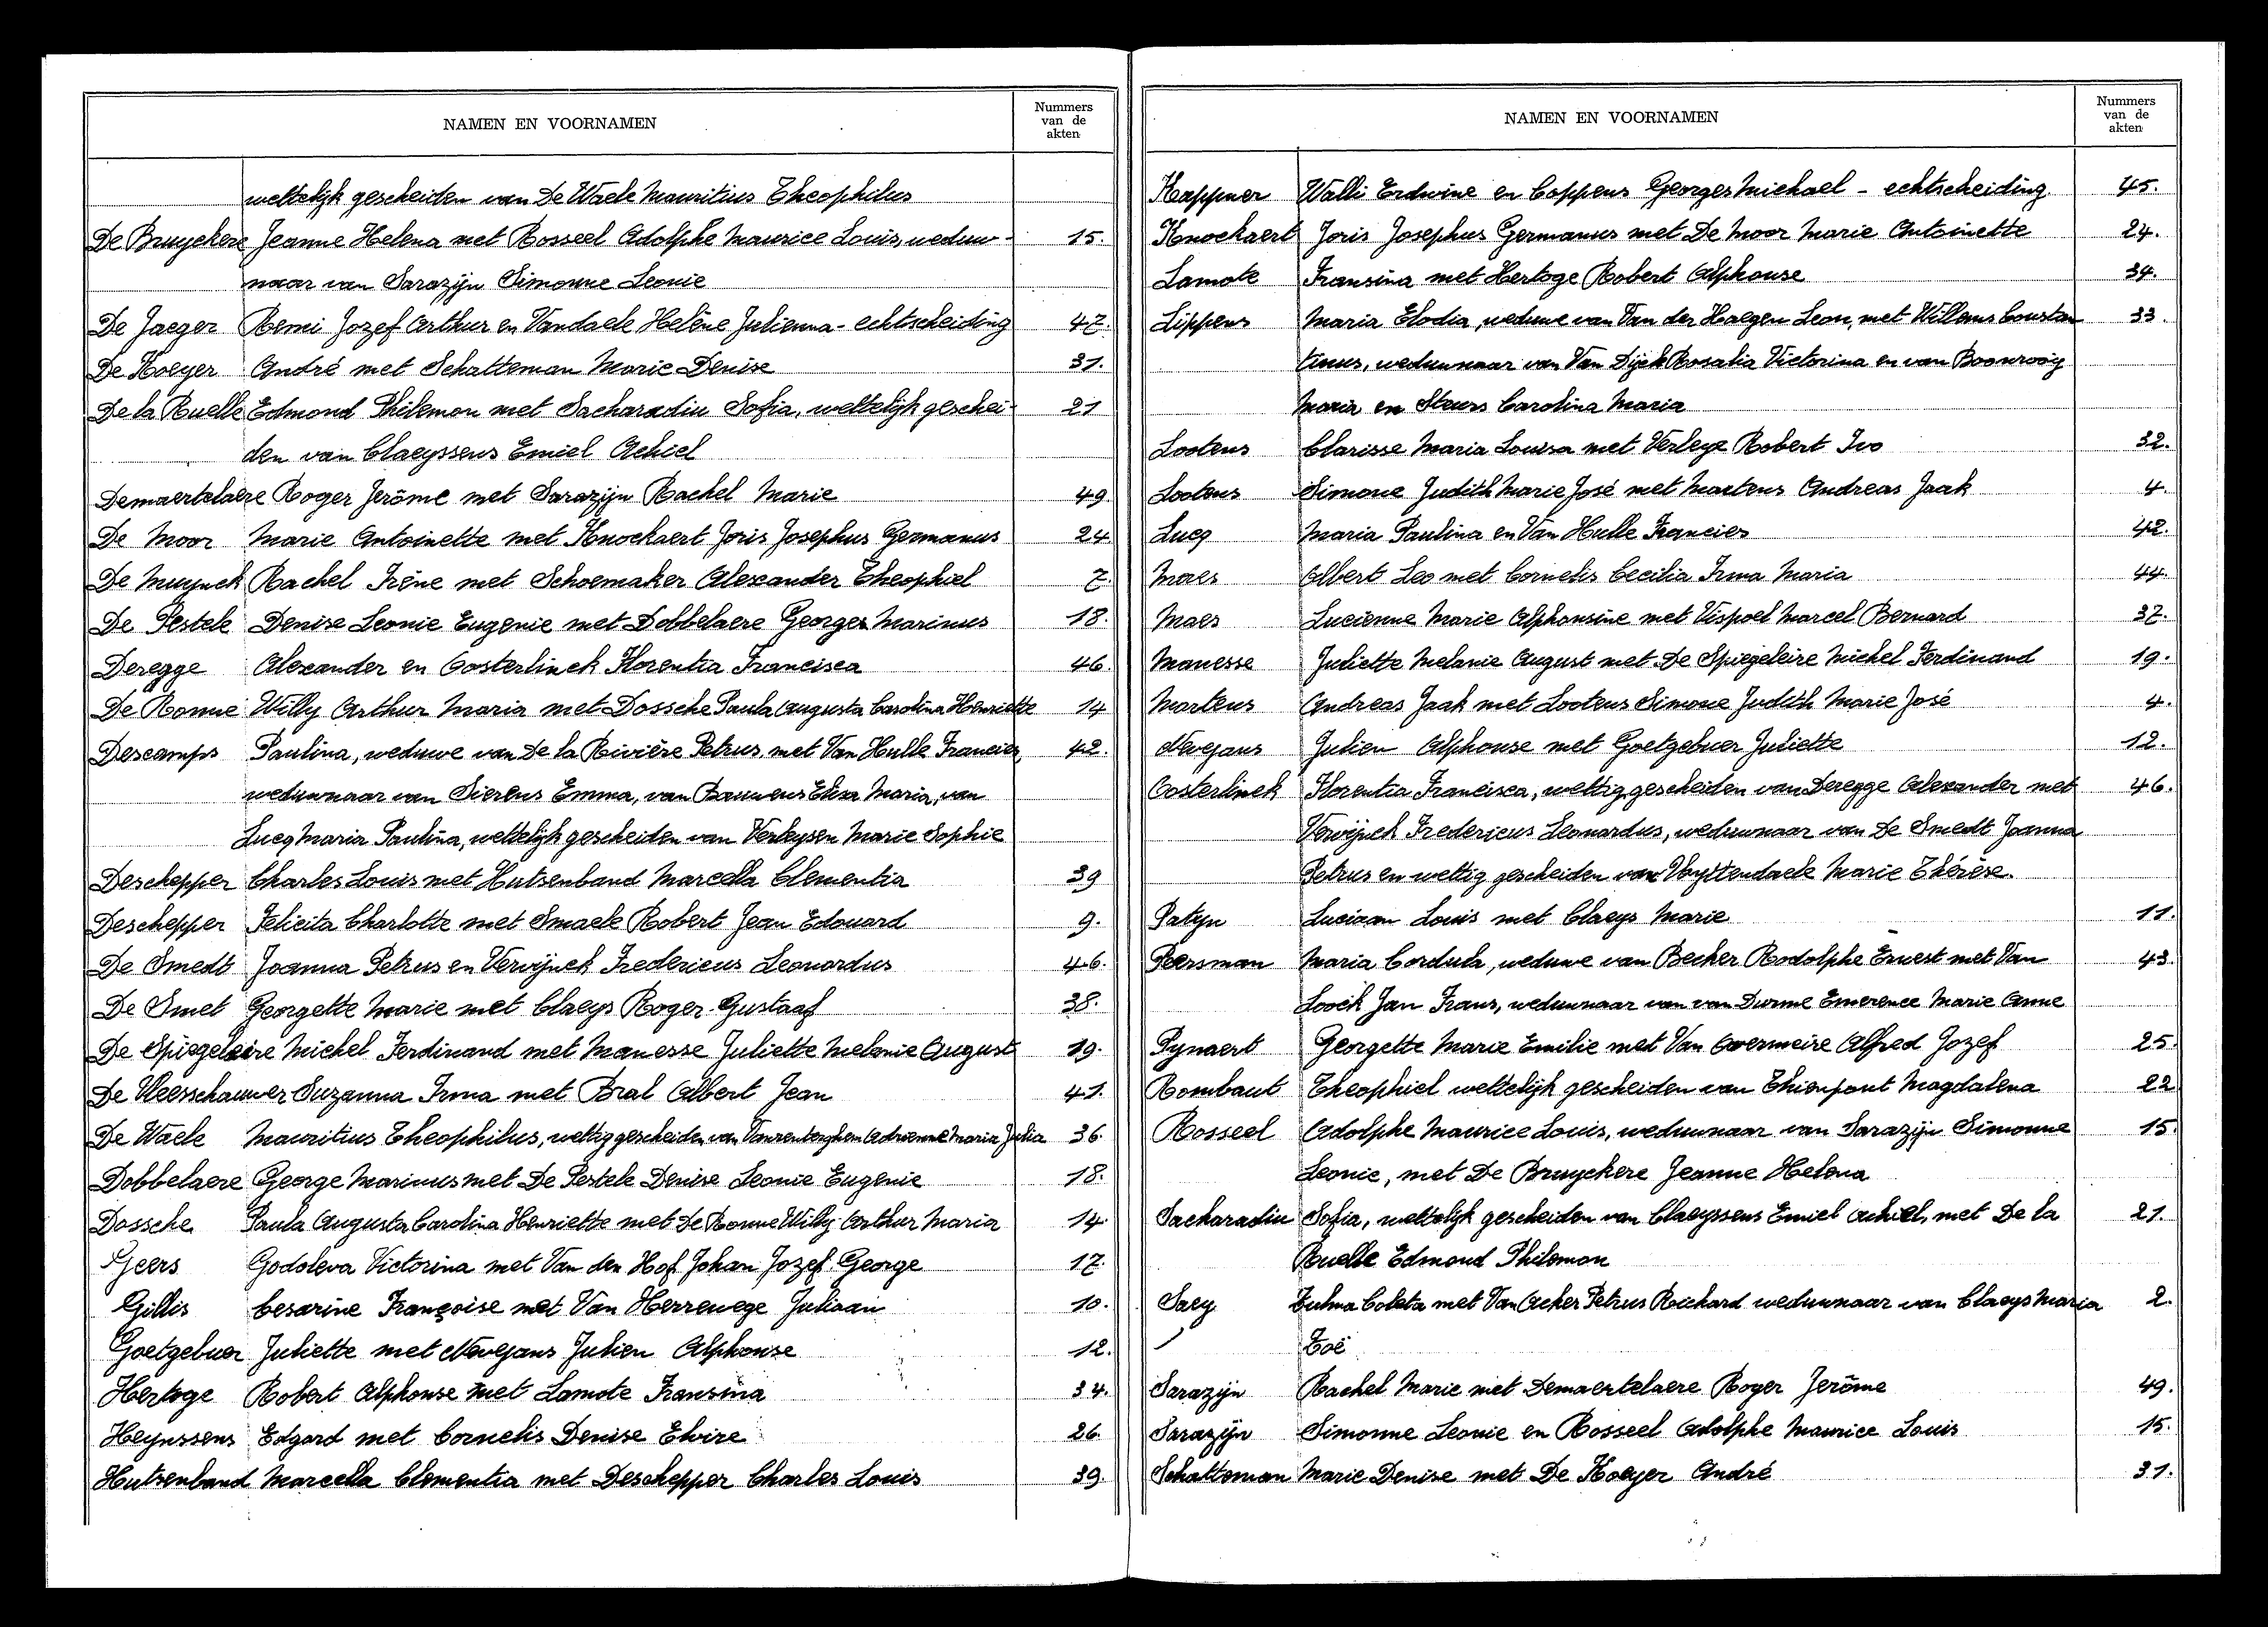 NAMEN EN VOORNAMEN
Nummers van de akten
wettelijk gescheiden van De Waele Mauritius Theophilus
De Bruyckere Jeanne Helena met Rosseel Adolphe Maurice Louis, weduw- 15.
naar van Sarazijn Simonne Leonie
De Jaeger Remi Jozef Arthur en Vandaele Helêne Julienna - echtscheiding 47.
De Koeyer André met Schatteman Marie Denise 31.
De la Ruelle Edmond Philemon met Sacharadiu Sofia, wettelijk geschei- 21
den van Claeyssens Emiel Achiel
Demaertelaere Roger Jerôme met Sarazijn Rachel Marie 49.
De Moor Marie Antoinette met Knockaert Joris Josephus Germanus 24
De Muynck Rachel Irêne met Schoemaker Alexander Theophiel 7.
De Pestele Denise Leonie Eugenie met Dobbelaere Georges Marinus 18.
Deregge Alexander en Oosterlinck Florentia Francisca 46.
De Ronne Willy Arthur Maria met Dossche Paula Augusta Carolina Henriette 14
Descamps Paulina, weduwe van De la Rivière Petrus, met Van Hulle Francies, 42.
weduwnaar van Sierens Emma, van Bauwens Elisa Maria, van
Lucq Maria Paulina, wettelijk gescheiden van Verleysen Marie Sophie
Deschepper Charles Louis met Hutsenband Marcella Clementia 39
Deschepper Felicita Charlotte met Smaele Robert Jean Edouard 9.
De Smedt Joanna Petrus en Verwijnck Fredericus Leonardus 46.
De Smet Georgette Marie met Claeys Roger Gustaaf 38.
De Spiegeleire Michel Ferdinand met Manesse Juliette Melanie August 19.
De Vleesschauwer Suzanna Irma met Bral Albert Jean 41.
De Waele Mauritius Theophilus, wettig gescheiden van Adrienne Maria Julia 36.
Dobbelaere George Marinus met De Pestele Denise Leonie Eugenie 18.
Dossche Paula Augusta Carolina Henriette met De Ronne Willy Arthur Maria 14
Geers Godoleva Victorina met Van den Hof Johan Jozef George 17.
Gillis Cesarine Françoise met Van Herrewege Juliaan 10.
Goetgebuer Juliette met Nevejans Julien Alphonse 12.
Hertoge Robert Alphonse met Lamote Fransina 34.
Heynssens Edgard met Cornelis Denise Elvire 26.
Hutsenband Marcella Clementia met Deschepper Charles Louis 39.
NAMEN EN VOORNAMEN
Nummers van de akten
Kappner Walli Erdwine en Coppens Georges Michael - echtscheiding 45.
Knockaert Joris Josephus Germanus met De Moor Marie Antoinette 24.
Lamote Fransina met Hertoge Robert Alphonse 34.
Lippens Maria Elodia, weduwe van Van der Haegen Leon, met Willems Constan 33.
tinus, weduwnaar van Van Dijck Rosalia Victorina en van Boonrooij
Maria en Steurs Carolina Maria
Lootens Clarisse Maria Louisa met Verleye Robert Ivo 32.
Lootens Simone Judith Marie José met Martens Andreas Jaak 4.
Lucq Maria Paulina en Van Hulle Francies 42.
Maes Albert Leo met Cornelis Cecilia Irma Maria 44.
Maes Lucienne Marie Alphonsine met Vispoel Marcel Bernard 37.
Manesse Juliette Melanie August met De Spiegeleire Michel Ferdinand 19.
Martens Andreas Jaak met Lootens Simone Judith Marie José 4.
Nevejans Julien Alphonse met Goetgebuer Juliette 12.
Oosterlinck Florentia Francisca, wettig gescheiden van Deregge Alexander met 46.
Verwijnck Fredericus Leonardus, weduwnaar van De Smedt Joanna
Petrus en wettig gescheiden van Uyttendaele Marie Thérèse.
Patyn Luciaan Louis met Claeys Marie 11.
Peersman Maria Cordula, weduwe van Becker Rodolphe Ernest met Van 43.
Loock Jan Frans, weduwnaar van van Durme Emerence Marie Anne
Pynaert Georgette Marie Emilie met Van Overmeire Alfred Jozef 25.
Rombaut Theophiel wettelijk gescheiden van Thienpont Magdalena 22
Rosseel Adolphe Maurice Louis, weduwnaar van Sarazijn Simonne 15.
Leonie, met De Bruyckere Jeanne Helena
Sacharadiu Sofia, wettelijk gescheiden van Claeyssens Emiel Achiel, met De la 21.
Ruelle Edmond Philemon
Saey Zulma Coleta met Van Acker Petrus Richard weduwnaar van Claeys Maria 2.
Zoë
Sarazijn Rachel Marie met Demaertelaere Roger Jerôme 49.
Sarazijn Simonne Leonie en Rosseel Adolphe Maurice Louis 15.
Schatteman Marie Denise met De Koeyer André 31.